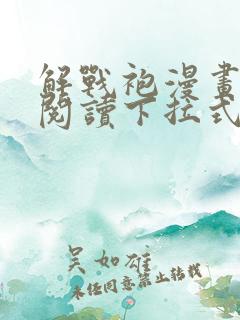 解戰袍漫畫
閱讀下拉式
吳如雄
未经同意禁止转载